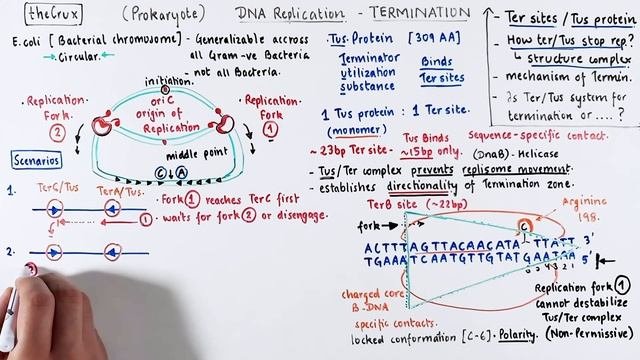 theCrux
(Prokaryote)
DNA Replication - TERMINATION
E.coli [Bacterial chromosome] - Generalizable accross
all Gram-ve Bacteria
→ Circular.
- not all Bacteria.
initiation.
oriC
origin of
Replication
• Replication
Fork.
2
• Replication
Fork.
1
middle point
C A
Scenarios
1.
TerC/Tus
TerA/Tus.
• Fork 1 reaches TerC first
• waits for fork 2 or disengage.
1
2.
2
Tus Protein [309 AA]
Terminator
utilization
substance
Binds
Ter sites
1 Tus protein : 1 Ter site.
(monomer)
Tus Binds
Sequence-specific contact.
~23bp Ter site - ~15bp only.
(DnaB) - Helicase
- Tus/Ter complex prevents replisome movement.
- establishes directionality of Termination zone.
- Ter sites / Tus protein.
- How ter/Tus stop rep.?
↳ structure complex
- mechanism of Termin.
- Is Ter/Tus system for
termination or ....?
TerB site (~22bp)
Arginine
198.
fork
C
ACTTTAGTTACAACATA TTATT 3'
TGAAATCAATGTTGTATGAATAA 5'
6 5 4 3 2 1
charged core
B-DNA
specific contacts.
locked conformation [C-6]. Polarity.
Replication fork 1
cannot destabilize
Tus/Ter complex
(Non-Permissive)